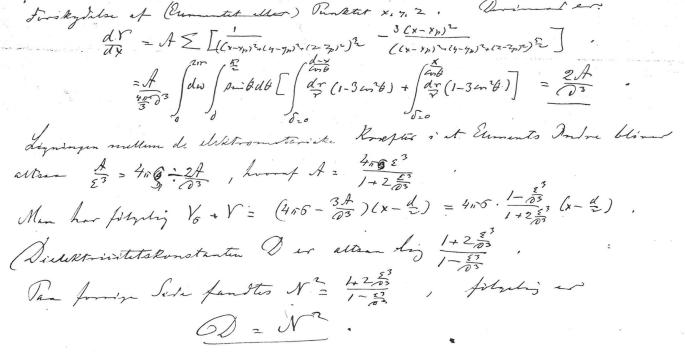 Forskydelse af (Elementet eller) Punktet x, y, z. Derimod er:
dV/dx = A Σ [ 1/((x-xp)²+(y-yp)²+(z-zp)²)^(3/2) - 3(x-xp)²/((x-xp)²+(y-yp)²+(z-zp)²)^(5/2) ].
= A/(4π/3 δ³) ∫₀^2π dω ∫₀^(π/2) sinθdθ [ ∫^((d-x)/cosθ) dr/r (1-3cos²θ) + ∫^(x/cosθ) dr/r (1-3cos²θ) ] = 2A/δ³.
Ligningen mellem de elektromotoriske Kræfter i et Elements Indre bliver
altsaa A/ε³ = 4πσ ÷ 2A/δ³, hvoraf A = 4πσε³/(1+2 ε³/δ³)
Man har følgelig Vσ + V = (4πσ - 3A/δ³)(x - d/2) = 4πσ · (1 - ε³/δ³)/(1+2 ε³/δ³) (x - d/2).
Dielektricitetskonstanten D er altsaa lig (1+2 ε³/δ³)/(1 - ε³/δ³)
Paa forrige Side fandtes N² = (1+2 ε³/δ³)/(1 - ε³/δ³), følgelig er
D = N².